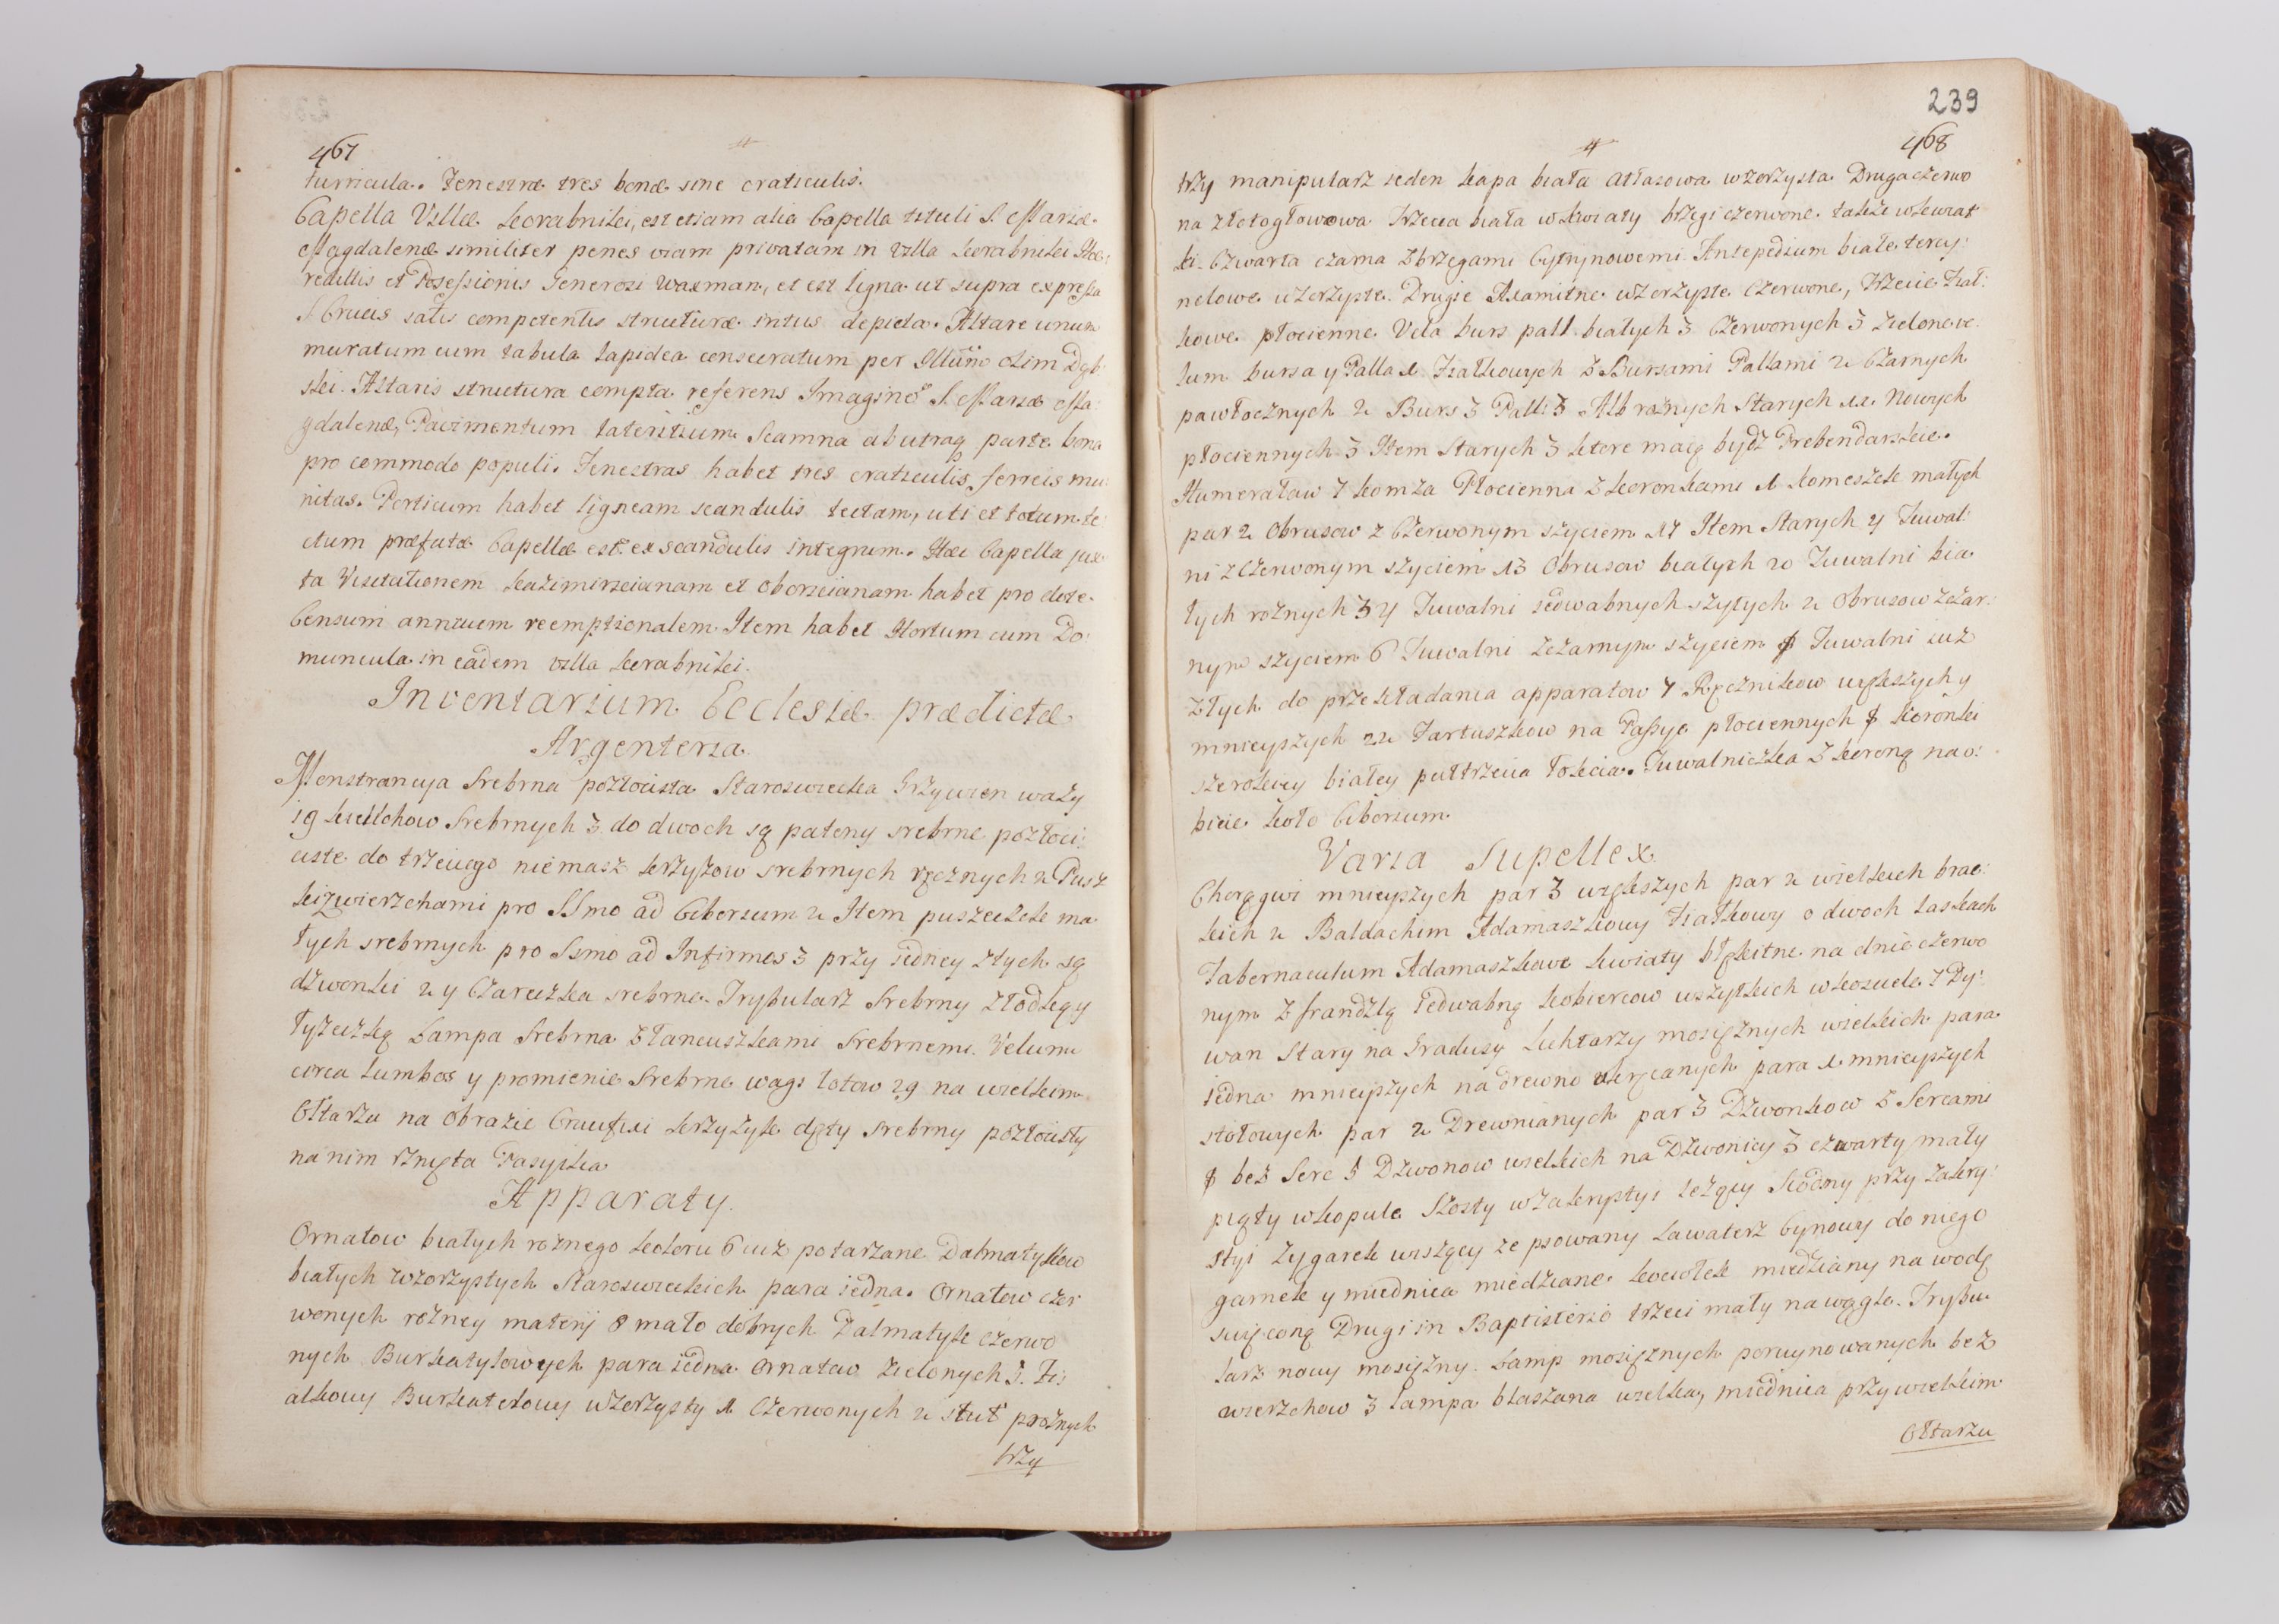 467
turricula. Fenestræ tres bonæ sine craticulis.
Capella Villæ Korabniki, est etiam alia Capella tituli S. Mariæ
Magdalenæ similiter penes viam privatam in villa Korabniki Hæ
reditis et Possessionis Generosi Waxman, et est lignea ut supra expressa
S. Crucis satis competentis structuræ intus depicta. Altare unum
muratum cum tabula lapidea consecratum per Illmo olim Dęb
ski. Altaris structura compta referens Imaginē S. Mariæ Ma
gdalenæ, Pavimentum lateritium Scamna ab utraq parte bona
pro commodo populi. Fenestras habet tres craticulis ferreis mu
nitas. Porticum habet ligneam scandulis tectam, uti et totum te
ctum præfatæ Capellæ est ex scandulis integrum. Hæc Capella jux
ta Visitationem Kazimirscianam et Oborscianam habet pro dote
Censum annuum reemptionalem. Item habet Hortum cum Do
muncula in eadem villa Korabniki.
Inventarium Ecclesiæ prædictæ
Argenteria.
Monstrancya Srebrna pozłocista Staroswiecka Grzywien waży
19 kielichow Srebrnych 3 do dwoch są pateny srebrne pozłoci
ciste do trzeciego niemasz krzyżow srebrnych ręcznych 2 Pusz
ki z wierzchami pro SSmo ad Ciborium 2 Item puszeczek ma
łych srebrnych pro Ssmo ad Infirmos 3 przy iedney złych są
dzwonki 2 y Czareczka srebrne. Trybularz Srebrny z łodką y
łyżeczką Lampa Srebrna z łancuszkami Srebrnemi. Velum
circa lumbos y promienie Srebrne wagi lotow 29 na wielkim
Ołtarzu na Obrazie Crucifixi krzyżyk dęty srebrny pozłocisty
na nim rznięta Pasyika
Apparaty.
Ornatow białych rożnego koloru 6 iuż potarzane Dalmatykow
białych wzorzystych Staroswieckich para iedna. Ornatow czer
wonych rożney materij 8 mało dobrych Dalmatyk czerwo
nych Burkatylowych para iedna Ornatow zielonych 5. Fi
ałkowy Burkatelowy wzorzysty 1 Czerwonych 2 stuł prożnych
trzy
239
468
trzy manipularz ieden kapa biała atłasowa wzorzysta Druga czerwo
na złotogłowowa Trzecia biała w kwiaty brzegi czerwone także w kwiat
ki. Czwarta czarna z brzegami Cytrynowemi Antepedium białe tercy:
nelowe wzorzyste. Drugie Axamitne wzorzyste Czerwone, Trzecie Fiał:
kowe płocienne Vela burs pall białych 3 Czerwonych 3 Zielone ve:
lum bursa y Palla 1 Fiałkowych z Bursami Pallami 2 Czarnych
pawłocznych 2 Burs 3 Palli 3 Alb rożnych Starych 12. Nowych
płociennych 3 Item Starych 3 ktore maią bydź Prebendarskie.
Humerałow 7 komża Płocienna z koronkami 1 komeszek małych
par 2 Obrusow z Czerwonym szyciem 17 Item Starych 4 Tuwal:
ni z Czerwonym szyciem 13 Obrusow białych 20 Tuwalni bia
łych rożnych 34 Tuwalni iedwabnych szytych 2 Obrusow z czar:
nym szyciem 6 Tuwalni z czarnym szyciem Tuwalni iuż
złych do przekładania apparatow 7 Ręcznikow większych y
mnieyszych 22 Fartuszkow na Passye płociennych Koronki
szerokiey białey pułtrzecia łokcia. Tuwalniczka z koroną na o:
bicie koło Ciborium
Varia Supellex.
Chorągwi mnieyszych par 3 większych par 2 wielkich brac:
kich 2 Baldachim Adamaszkowy Fiałkowy o dwoch laskach
Tabernaculum Adamaszkowe kwiaty błękitne na dnie czerwo
nym z frandzlą iedwabną kobiercow wszytkich w kosciele 7 Dy:
wan Stary na Gradusy Lichtarzy mosiężnych wielkich para
iedna mnieyszych na drewno wkręcanych para 1 mnieyszych
stołowych par 2 Drewnianych par 3 Dzwonkow z Sercami
bez Serc 5 Dzwonow wielkich na Dzwonicy 3 czwarty mały
piąty w kopule Szosty w Zakrystyi leżący Siodmy przy zakry:
styi Zygarek wiszący ze psowany Lawaterz Cynowy do niego
garnek y miednica miedziane. kociołek miedziany na wodę
święconą Drugi in Baptisterio trzeci mały na węgle. Trybu
larz nowy mosiężny. Lamp mosiężnych porujnowanych bez
wierzchow 3 Lampa blaszana wielka, miednica przy wielkim
Ołtarzu